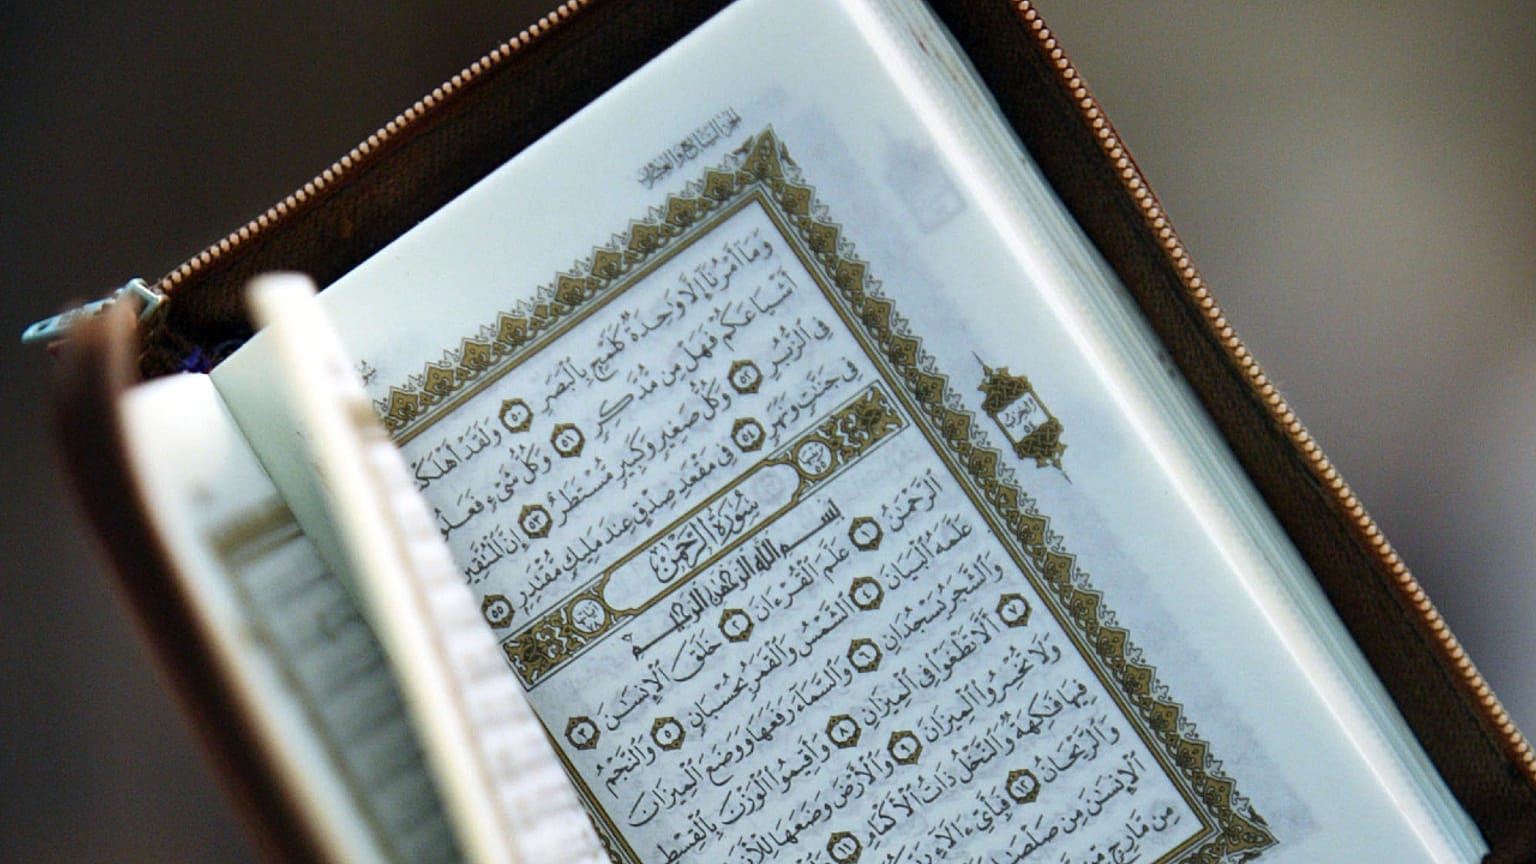 الجزء السابع والعشرون
وَمَا أَمْرُنَا إِلَّا وَٰحِدَةٌ كَلَمْحٍ بِالْبَصَرِ ٥٠ وَلَقَدْ أَهْلَكْ
أَشْيَاعَكُمْ فَهَلْ مِن مُّدَّكِرٍ ٥١ وَكُلُّ شَىْءٍ فَعَلُو
فِى الزُّبُرِ ٥٢ وَكُلُّ صَغِيرٍ وَكَبِيرٍ مُّسْتَطَرٌ ٥٣ إِنَّ الْمُتَّقِينَ
فِى جَنَّٰتٍ وَنَهَرٍ ٥٤ فِى مَقْعَدِ صِدْقٍ عِندَ مَلِيكٍ مُّقْتَدِرٍ ٥٥
سُورَةُ الرَّحْمَٰن
بسم الله الرحمن الرحيم
الرَّحْمَٰنُ ١ عَلَّمَ الْقُرْءَانَ ٢ خَلَقَ الْإِنسَٰنَ ٣
عَلَّمَهُ الْبَيَانَ ٤ الشَّمْسُ وَالْقَمَرُ بِحُسْبَانٍ ٥ وَالنَّجْمُ
وَالشَّجَرُ يَسْجُدَانِ ٦ وَالسَّمَآءَ رَفَعَهَا وَوَضَعَ الْمِيزَانَ
٧ أَلَّا تَطْغَوْا فِى الْمِيزَانِ ٨ وَأَقِيمُوا الْوَزْنَ بِالْقِسْطِ
وَلَا تُخْسِرُوا الْمِيزَانَ ٩ وَالْأَرْضَ وَضَعَهَا لِلْأَنَ
فِيهَا فَٰكِهَةٌ وَالنَّخْلُ ذَاتُ الْأَكْمَامِ ١١
وَالرَّيْحَانُ ١٢ فَبِأَىِّ ءَالَآءِ
الْإِنسَٰنَ مِن صَلْصَٰلٍ
مِن مَّارِجٍ مِّن
الحزب
٥٤